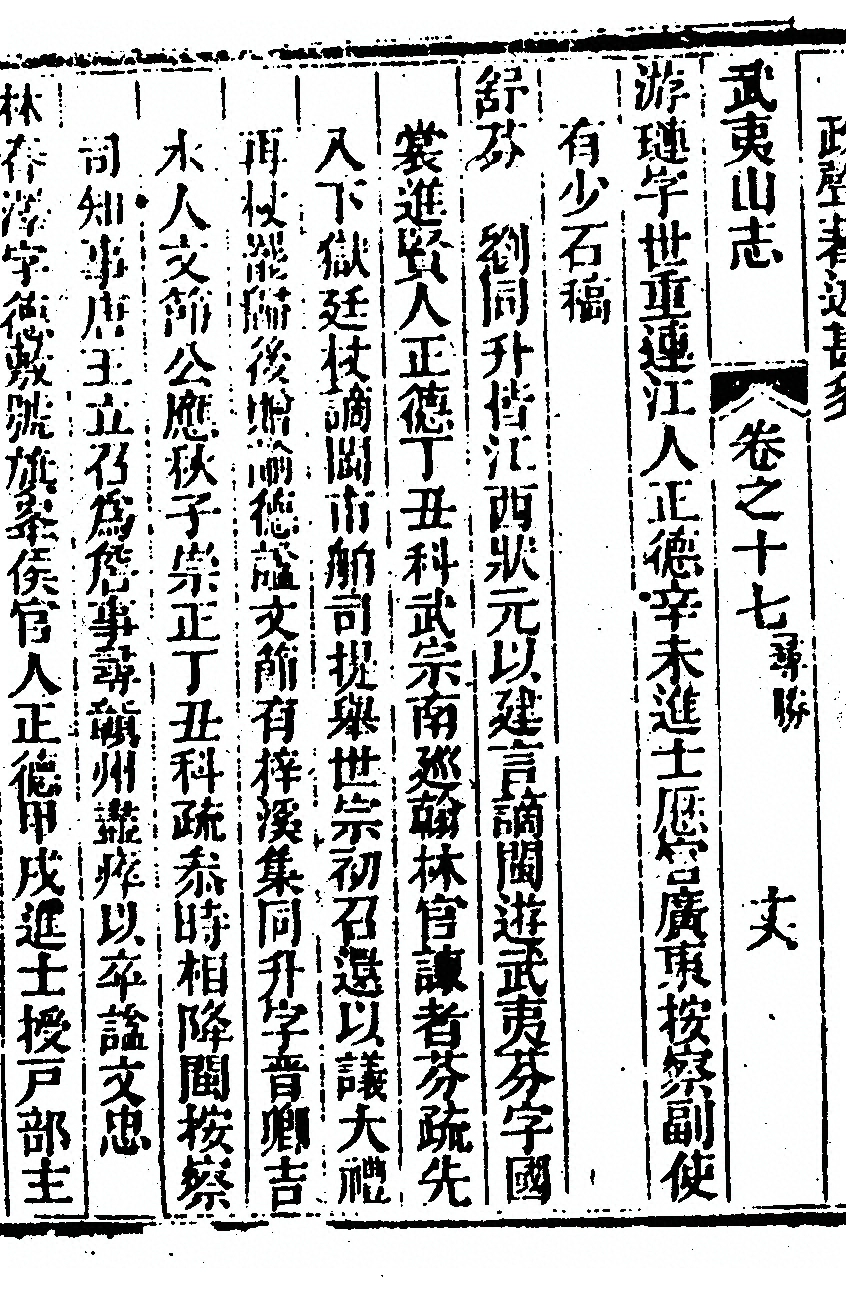 政聲著述甚多
武夷山志 卷之十七 尋勝 十八
游璉字世重連江人正德辛未進士歷官廣東按察副使
有少石稿
舒芬 劉同升偕江西狀元以建言謫閩遊武夷芬字國
裳進賢人正德丁丑科武宗南巡翰林官諫者芬疏先
入下獄廷杖謫閩市舶司提舉世宗初召還以議大禮
再杖罷歸後贈諭德諡文節有梓溪集同升字晉卿吉
水人文節公應秋子崇正丁丑科疏忝時相降閩按察
司知事唐王立召為詹事尋贛州盡瘁以卒諡文忠
林春澤字德敷號旗峯侯官人正德甲戌進士授戸部主